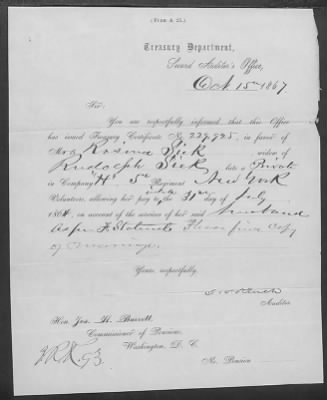 (Form A 25.)
Treasury Department,
Second Auditor's Office,
Oct. 15th 1867
Sir:
You are respectfully informed that this Office
has issued Treasury Certificate No. 229,925, in favor of
Mrs Rosina Sick widow of
Rudolph Sick late a Private
in Company "H" 5th Regiment New York
Volunteers, allowing her pay to the 31st day of July
1864, on account of the services of her said husband
as per Statements Please find Copy
of
Yours, respectfully,
Auditor.
Hon. Jos. H. Barrett,
Commissioner of Pensions,
Washington, D. C.
No. Pension